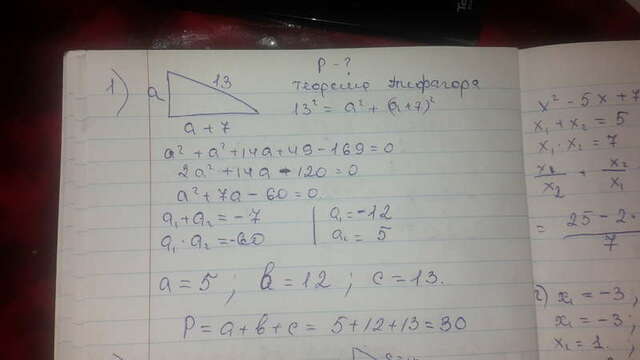 P - ?
1)
a
13
a + 7
Теорема Пифагора
13² = a² + (a+7)²
a² + a² + 14a + 49 - 169 = 0
2a² + 14a - 120 = 0
a² + 7a - 60 = 0
a₁ + a₂ = -7
a₁ · a₂ = -60
a₁ = -12
a₂ = 5
a = 5 ; b = 12 ; c = 13.
P = a + b + c = 5 + 12 + 13 = 30
x² - 5x + 7
x₁ + x₂ = 5
x₁ · x₂ = 7
= 25 - 2·
7
x₁ = -3 ;
x₁ = -3 ;
x₁ = 1.